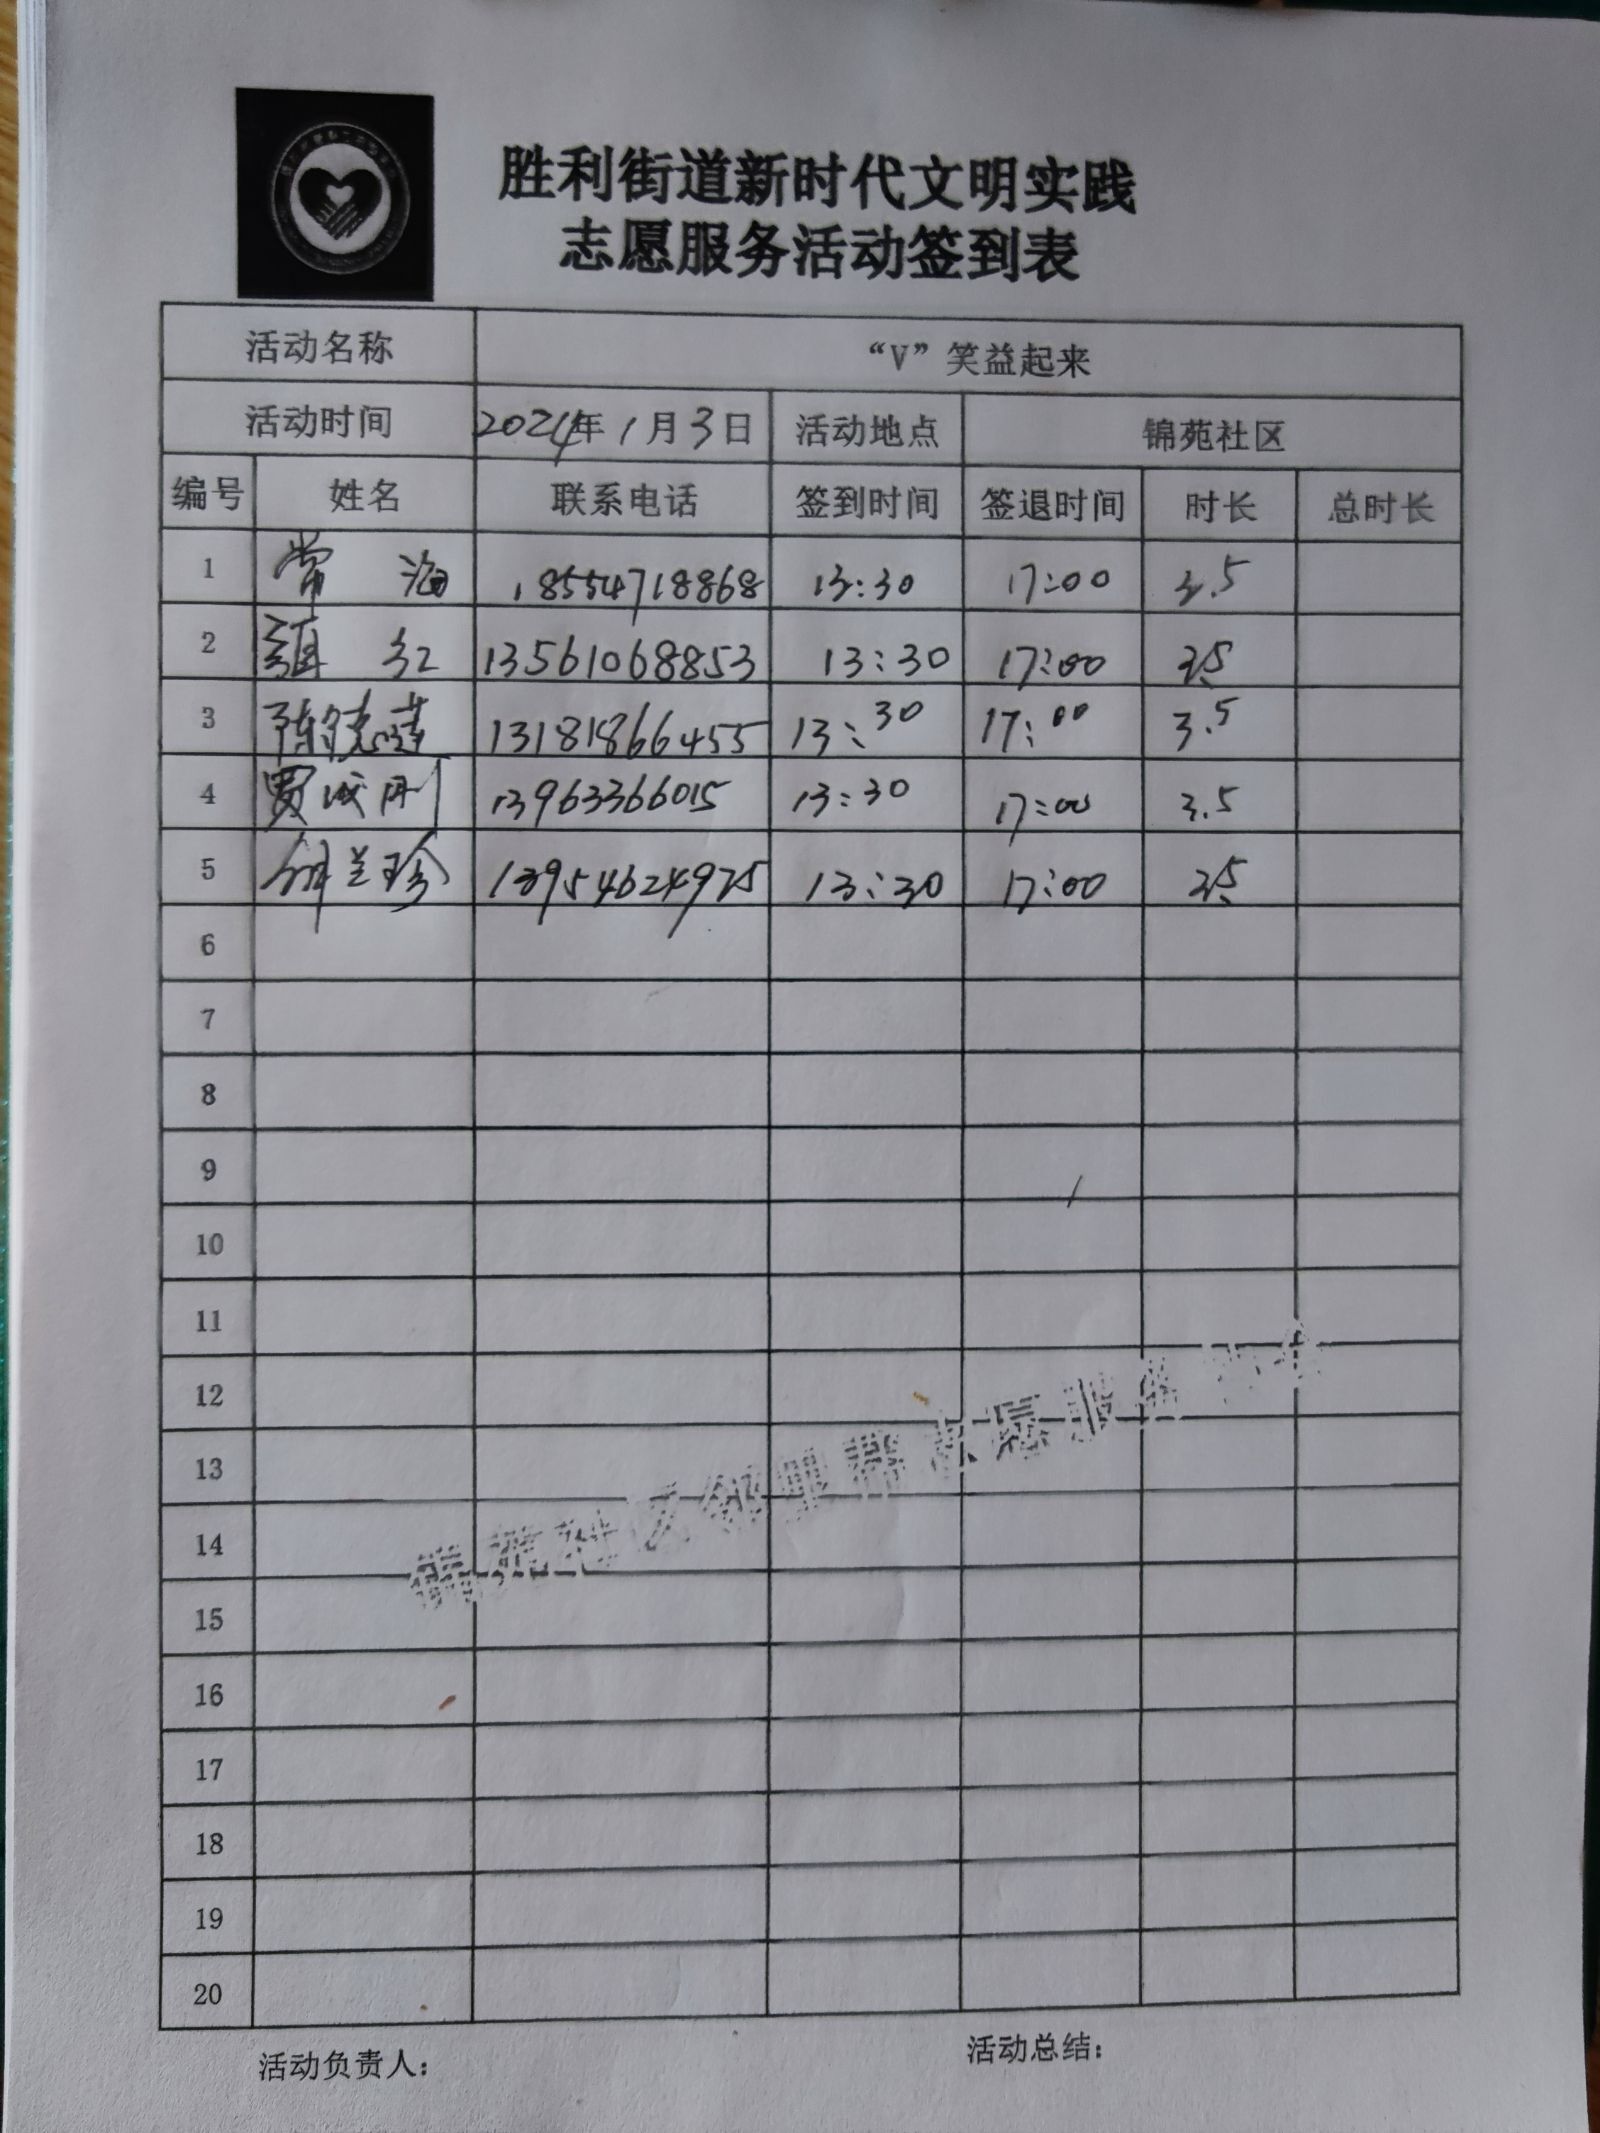 胜利街道新时代文明实践
志愿服务活动签到表
活动名称 “V”笑益起来
活动时间 2024年1月3日 活动地点 锦苑社区
编号 姓名 联系电话 签到时间 签退时间 时长 总时长
1 常海 18554718868 13:30 17:00 3.5
2 红 13561068853 13:30 17:00 3.5
3 陈晓 13181866455 13:30 17:00 3.5
4 贾成刚 13963366015 13:30 17:00 3.5
5 兰珍 13954624925 13:30 17:00 3.5
6
7
8
9
10
11
12
13
14
15
16
17
18
19
20
锦苑社区邻里帮志愿服务
活动负责人： 活动总结：